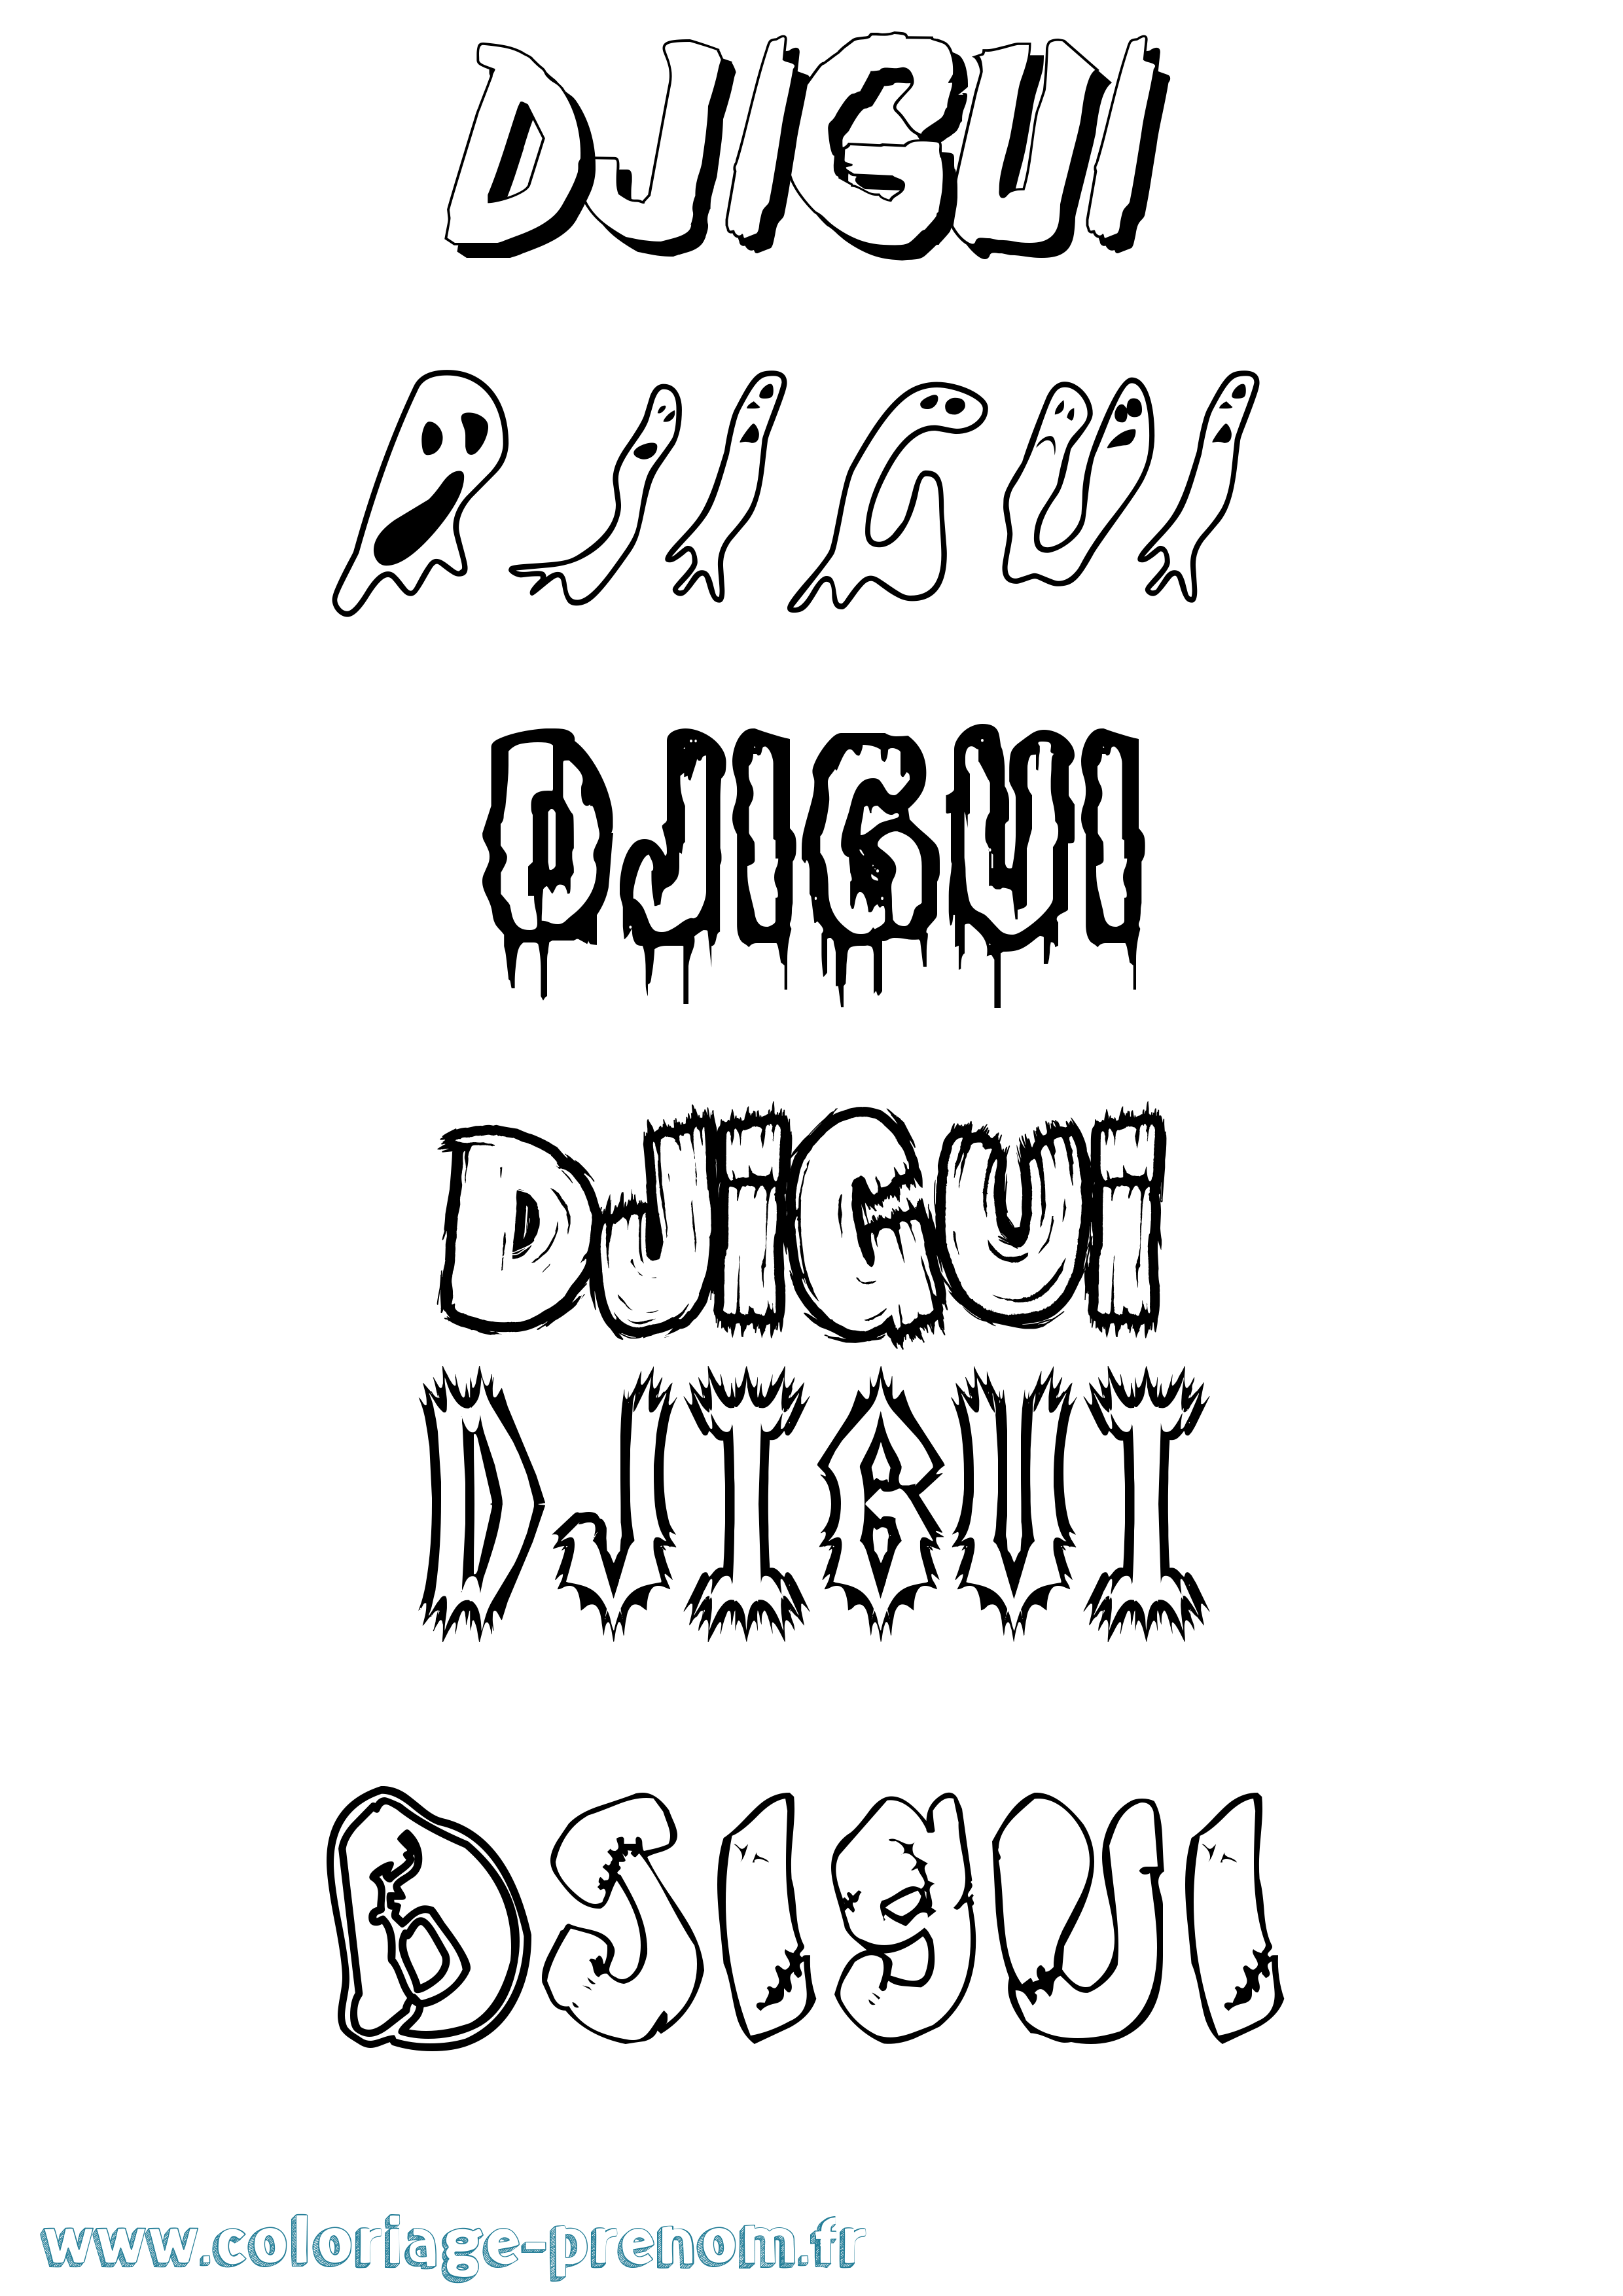 DJIGUI
DJIGUI
DJIGUI
DJiGUi
DJIGUI
DJIgUI
www.coloriage-prenom.fr